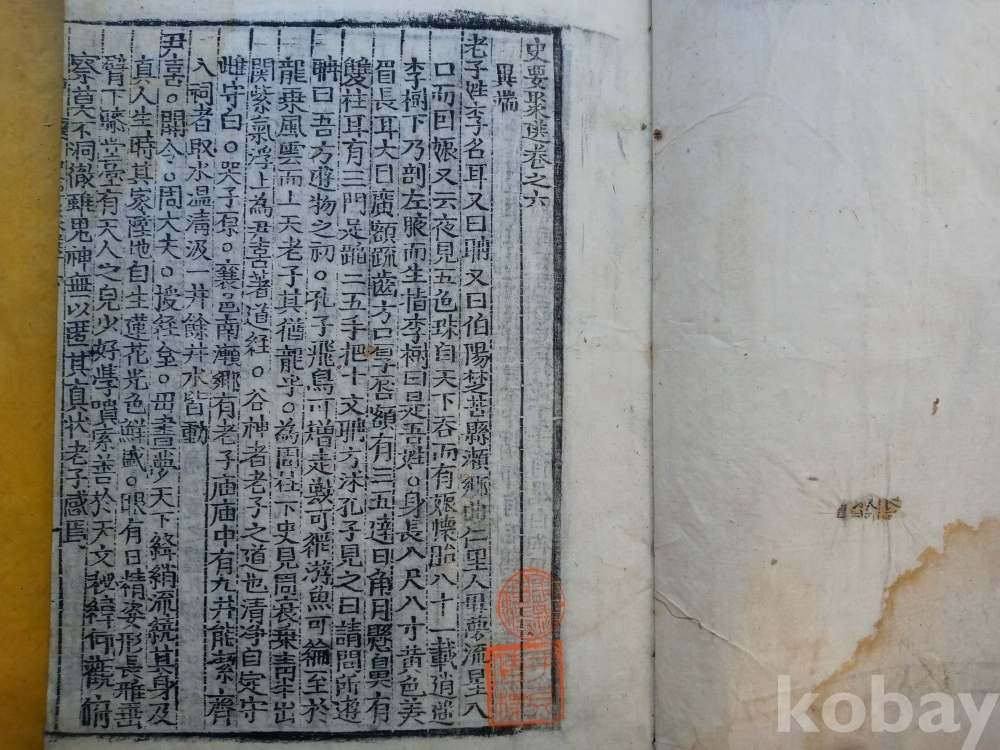 史要聚選卷之六
異端
老子姓李名耳又曰聃又曰伯陽楚苦縣瀨鄕曲仁里人母夢流星入
口而曰娠又云夜見五色珠自天下呑而有娠懷胎八十一載逍遙
李樹下乃剖左腋而生指李樹曰是吾姓○身長八尺八寸黃色美
眉長耳大目廣額疏齒方口厚唇額有三五達日角月懸鼻有
雙柱耳有三門足蹈二五手把十文聃方沐孔子見之曰請問所遊
聃曰吾方遊物之初○孔子飛鳥可矰走獸可 游魚可綸至於
龍乘風雲而上天老子其猶龍乎○為周柱下史見周衰乘靑牛出
關紫氣浮上為尹喜著道經○谷神者老子之道也清凈自定守
唯守白○哭子 ○襄邑南瀨鄕有老子庙庙中有九井能潔齋
入祠者取水温淸汲一井餘井水皆動
尹喜○關令○周大夫○授經 ○母晝夢天下絳綃流繞其身及
真人生時其家陸地自生蓮花光色鮮盛○眼有日精姿形長雅垂
臂下膝 有天人之皃少好學 索善於天文秘緯仰觀俯
察莫不洞徹雖鬼神無以匿其真狀老子感焉
kobay